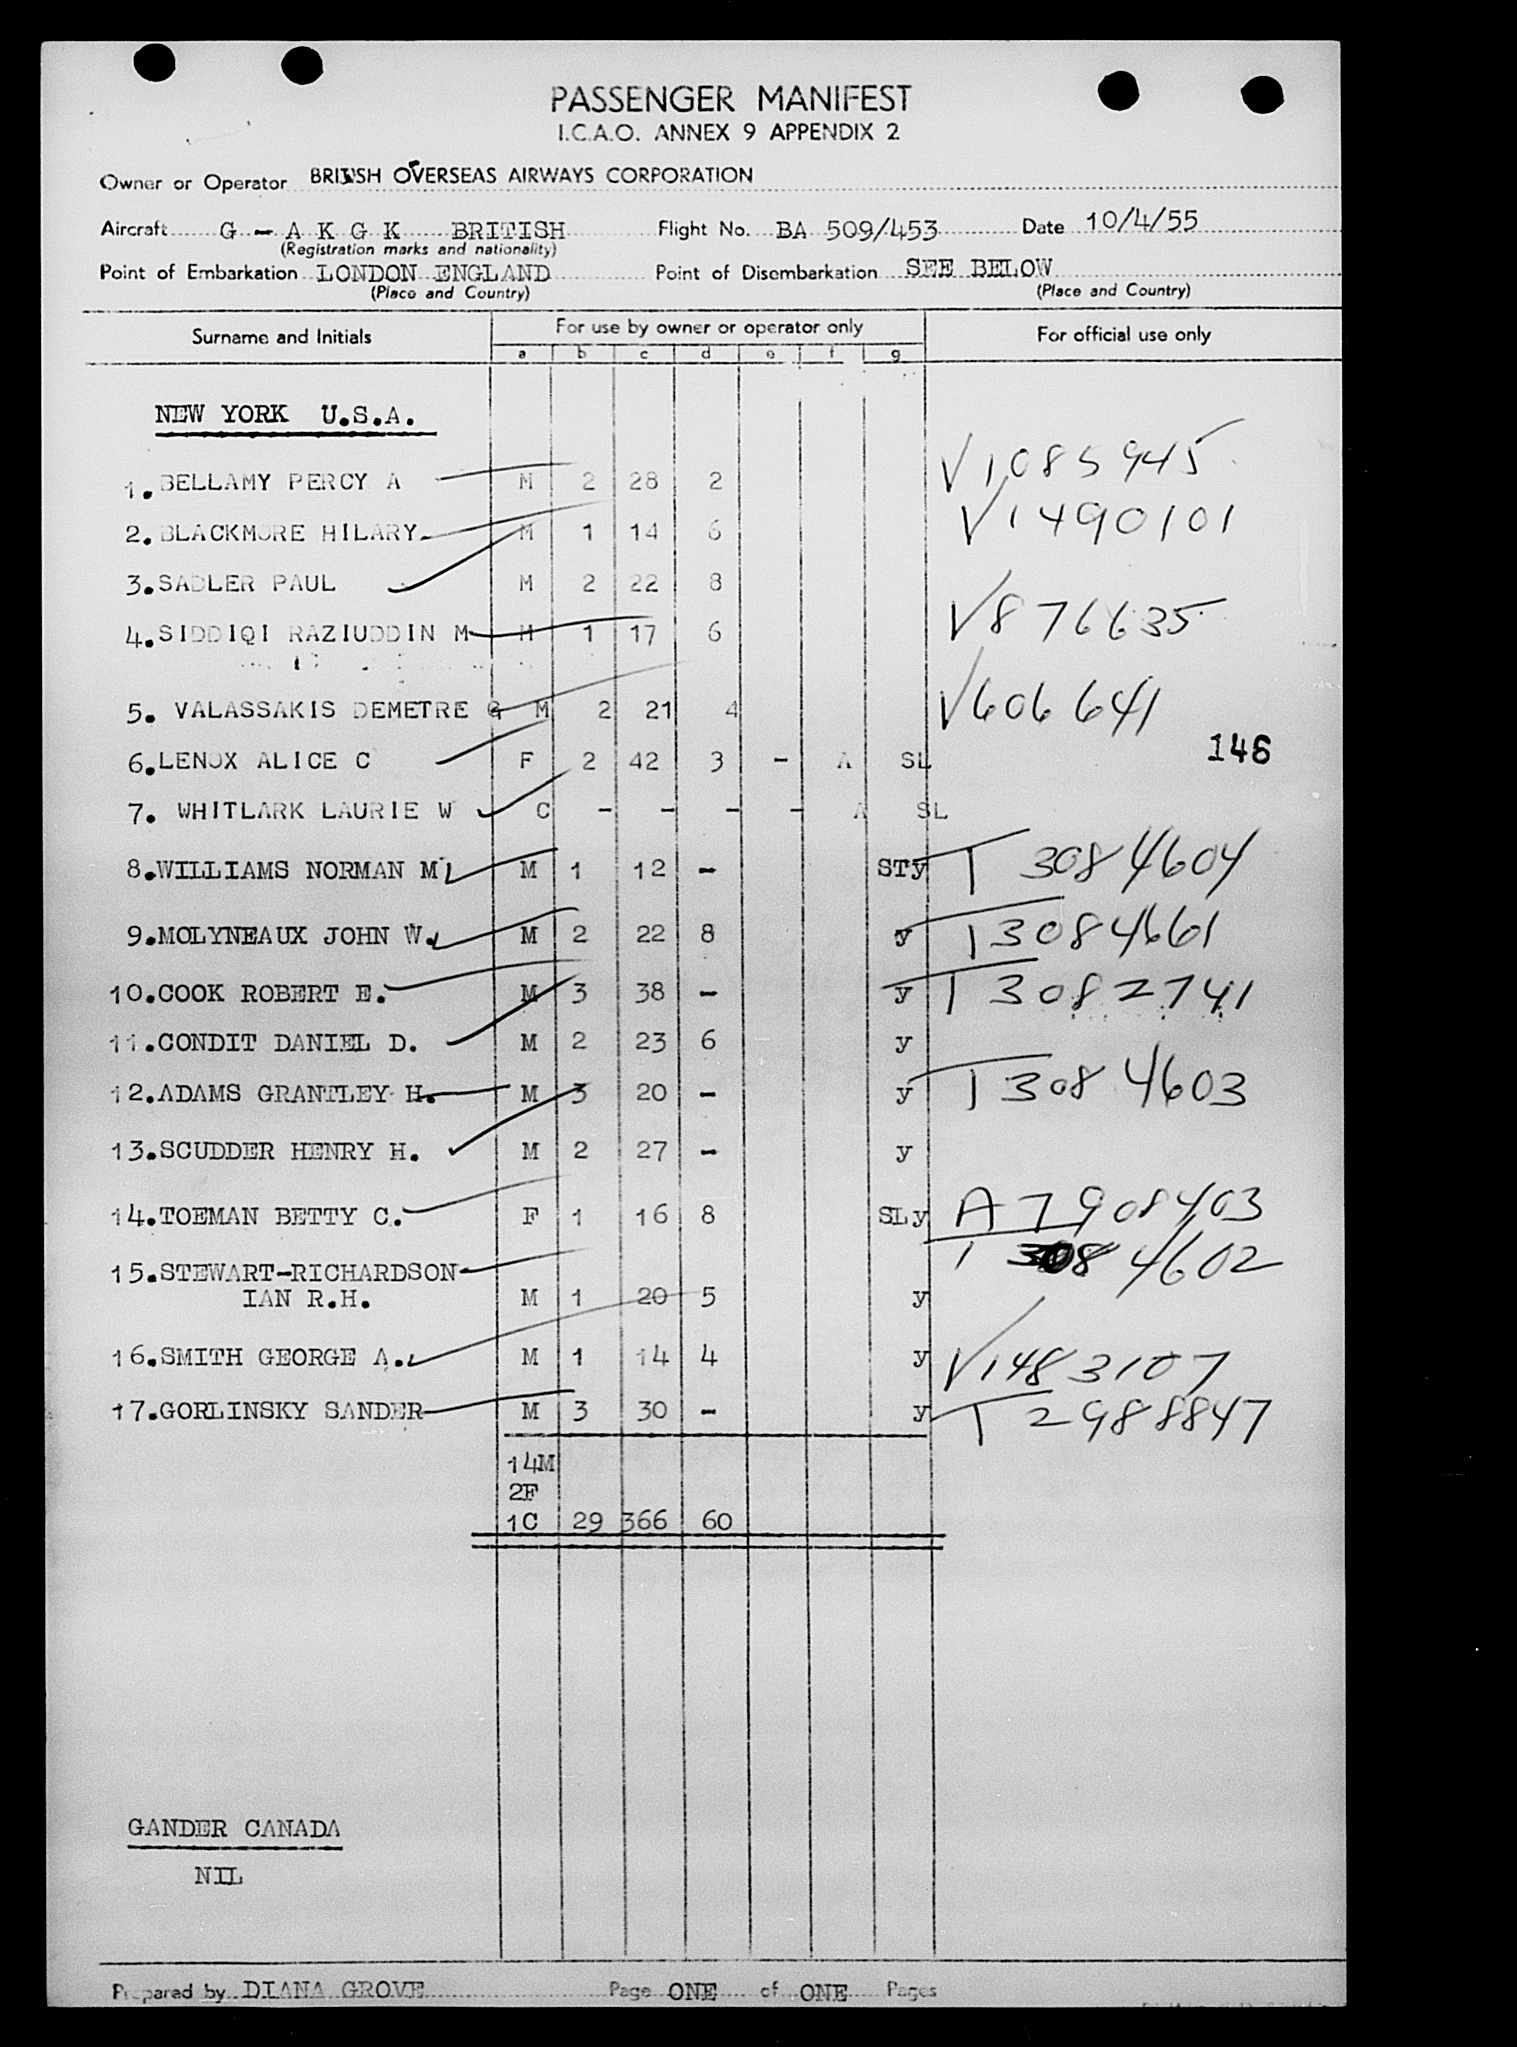 PASSENGER MANIFEST
I.C.A.O. ANNEX 9 APPENDIX 2
Owner or Operator BRITISH OVERSEAS AIRWAYS CORPORATION
Aircraft G - A K G K BRITISH Flight No. BA 509/453 Date 10/4/55
(Registration marks and nationality)
Point of Embarkation LONDON ENGLAND Point of Disembarkation SEE BELOW
(Place and Country) (Place and Country)
Surname and Initials For use by owner or operator only For official use only
a b c d e f g
NEW YORK U.S.A.
1. BELLAMY PERCY A M 2 28 2 V1085945
2. BLACKMORE HILARY M 1 14 6 V1490101
3. SADLER PAUL M 2 22 8
4. SIDDIQI RAZIUDDIN M M 1 17 6 V876635
5. VALASSAKIS DEMETRE G M 2 21 4 V606641
6. LENOX ALICE C F 2 42 3 - A SL 146
7. WHITLARK LAURIE W C - - - - A SL
8. WILLIAMS NORMAN M M 1 12 - STy T 3084604
9. MOLYNEAUX JOHN W. M 2 22 8 y T 3084661
10. COOK ROBERT E. M 3 38 - y T 3082741
11. CONDIT DANIEL D. M 2 23 6 y
12. ADAMS GRANTLEY H. M 3 20 - y T 3084603
13. SCUDDER HENRY H. M 2 27 - y
14. TOEMAN BETTY C. F 1 16 8 SLy A7908403
15. STEWART-RICHARDSON T 3084602
IAN R.H. M 1 20 5 y
16. SMITH GEORGE A. M 1 14 4 y V1483107
17. GORLINSKY SANDER M 3 30 - y T 2988847
14M
2F
1C 29 366 60
GANDER CANADA
NIL
Prepared by DIANA GROVE Page ONE of ONE Pages